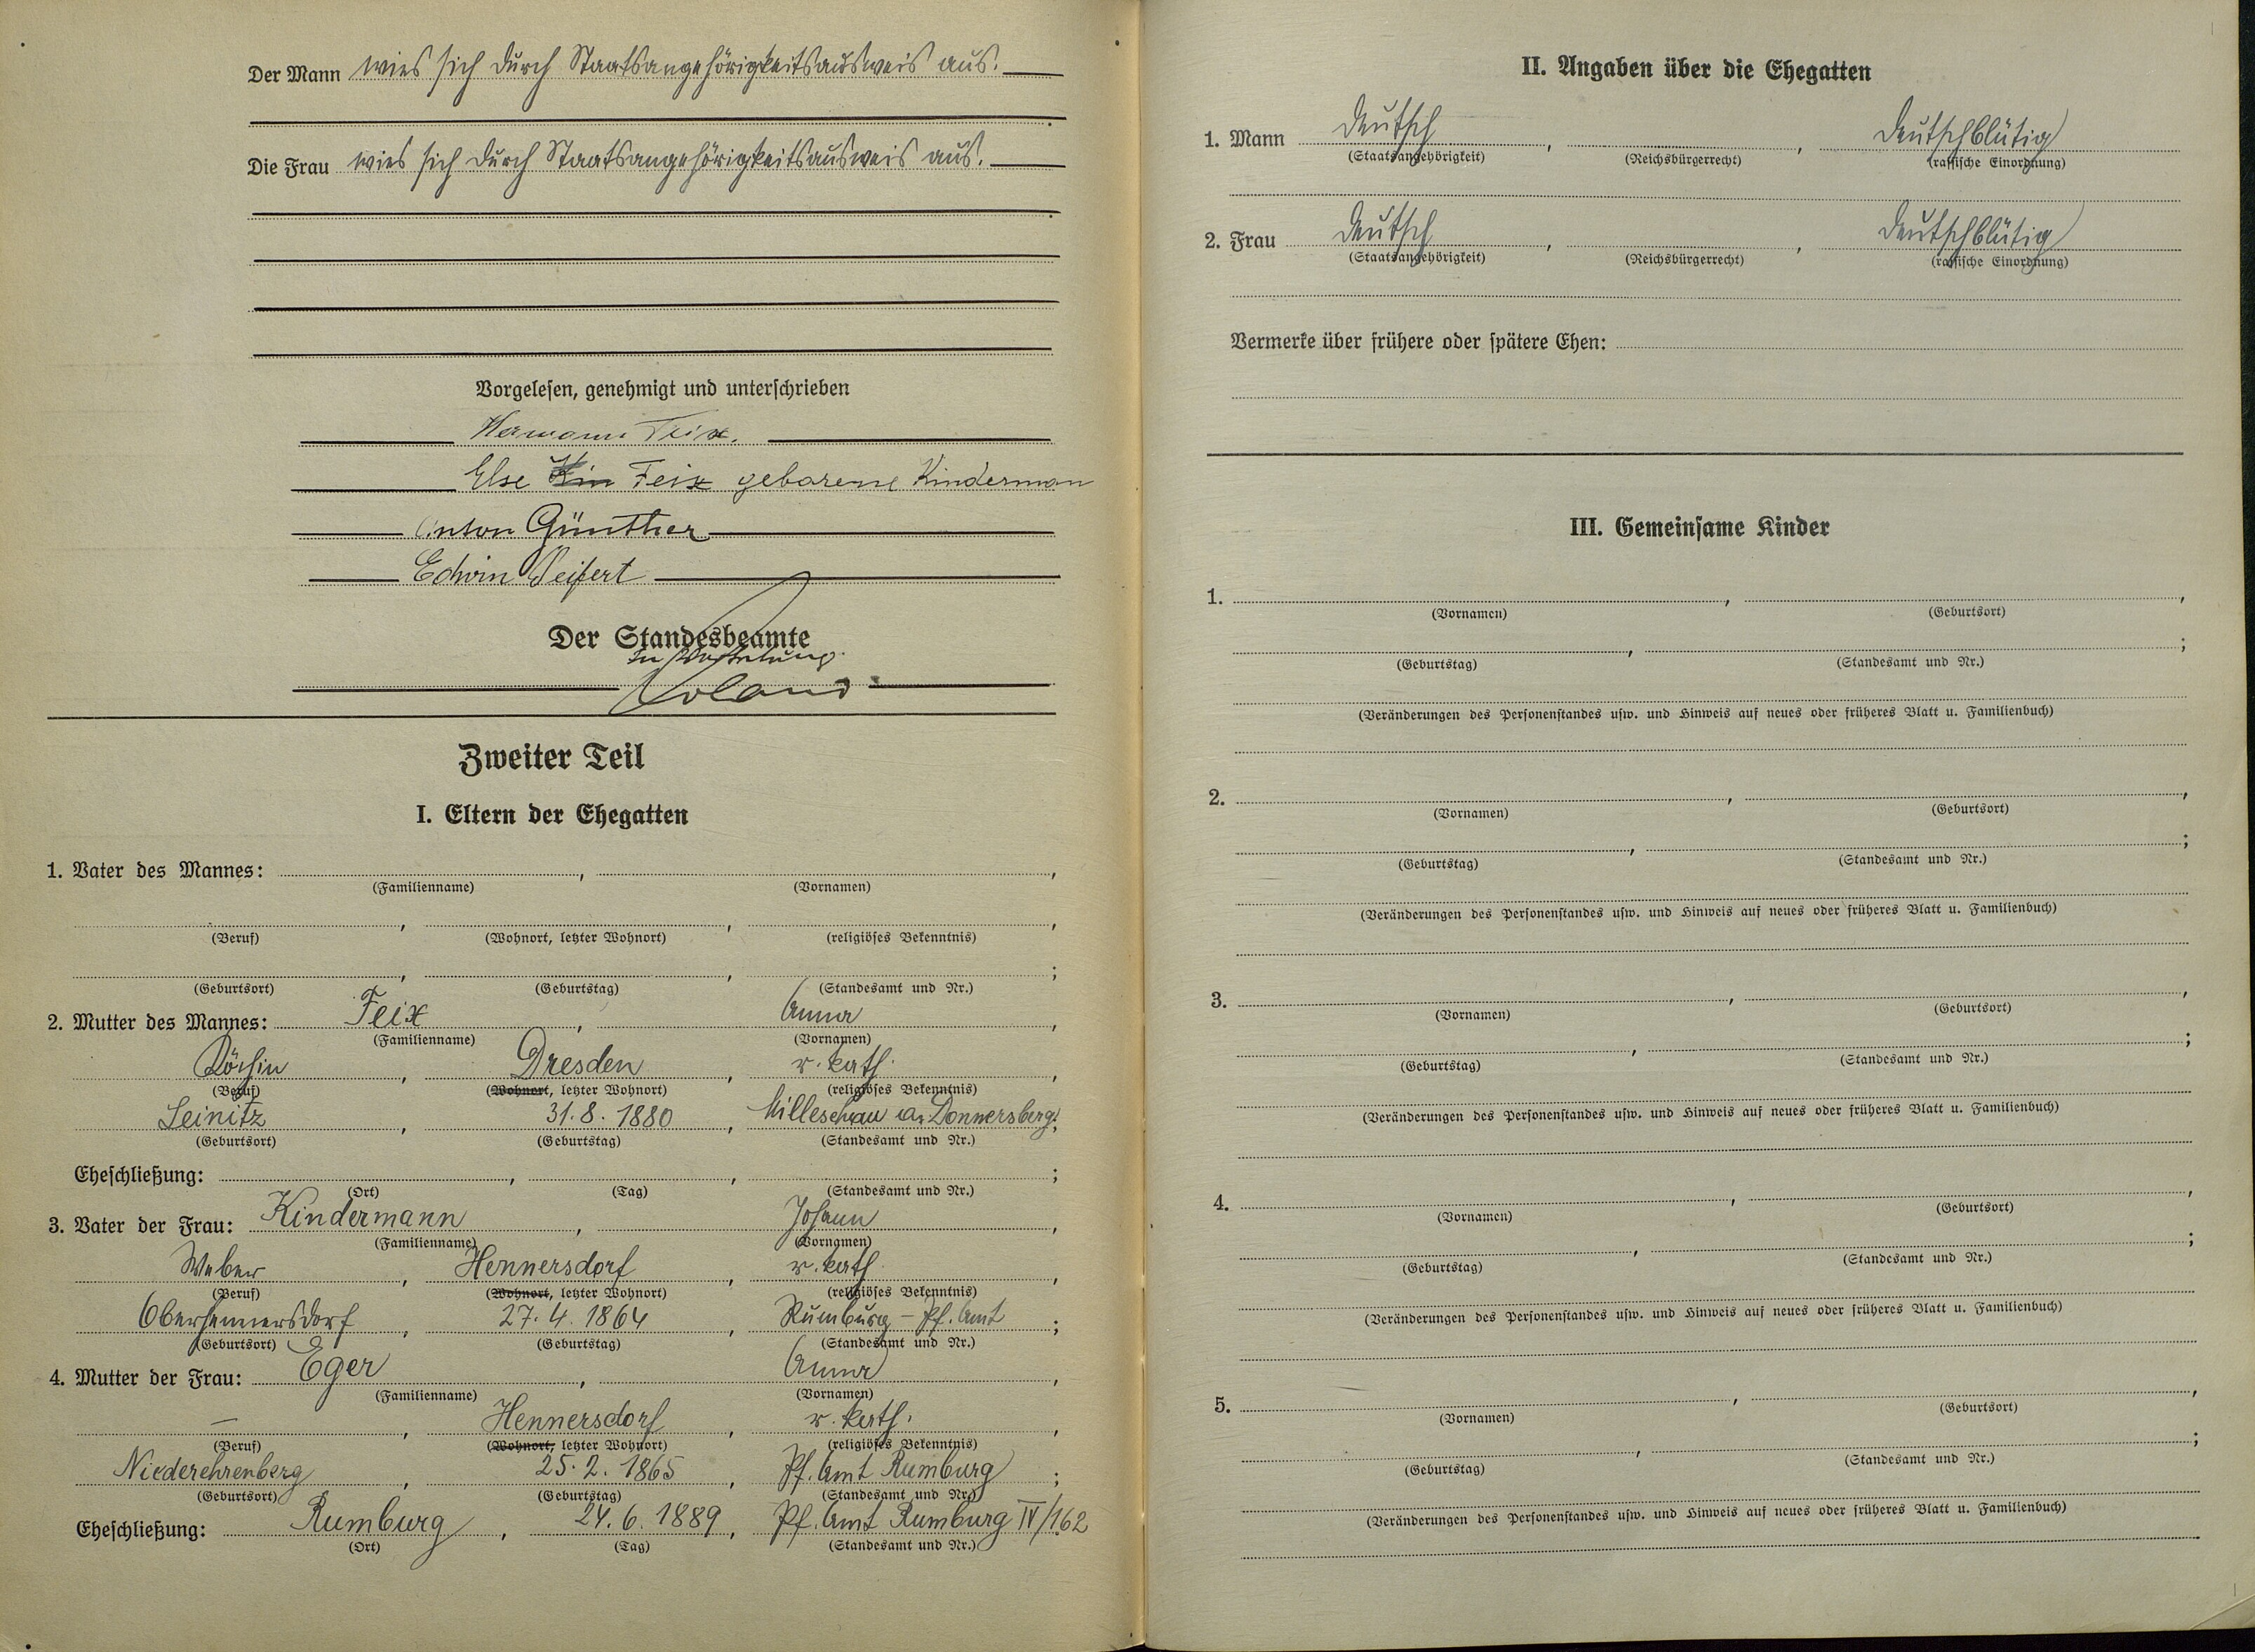 Der Mann wies sich durch Staatsangehörigkeitsausweis aus.
Die Frau wies sich durch Staatsangehörigkeitsausweis aus.
Vorgelesen, genehmigt und unterschrieben
Hermann Feix.
Else Kin Feix geborene Kinderman
Anton Günther
Edwin Seifert
Der Standesbeamte
In Vertretung
Zweiter Teil
I. Eltern der Ehegatten
1. Vater des Mannes: , ,
(Familienname) (Vornamen)
, , ,
(Beruf) (Wohnort, letzter Wohnort) (religiöses Bekenntnis)
, , ;
(Geburtsort) (Geburtstag) (Standesamt und Nr.)
2. Mutter des Mannes: Feix , Anna ,
(Familienname) (Vornamen)
Köchin , Dresden , r. kath. ,
(Beruf) (Wohnort, letzter Wohnort) (religiöses Bekenntnis)
Leinitz , 31. 8. 1880 , Milleschau a. Donnersberg ;
(Geburtsort) (Geburtstag) (Standesamt und Nr.)
Eheschließung: , , ;
(Ort) (Tag) (Standesamt und Nr.)
3. Vater der Frau: Kindermann , Johann ,
(Familienname) (Vornamen)
Weber , Hennersdorf , r. kath. ,
(Beruf) (Wohnort, letzter Wohnort) (religiöses Bekenntnis)
Oberhennersdorf , 27. 4. 1864 , Rumburg – Pf. Amt ;
(Geburtsort) (Geburtstag) (Standesamt und Nr.)
4. Mutter der Frau: Eger , Anna ,
(Familienname) (Vornamen)
– , Hennersdorf , r. kath. ,
(Beruf) (Wohnort, letzter Wohnort) (religiöses Bekenntnis)
Niederehrenberg , 25. 2. 1865 , Pf. Amt Rumburg ;
(Geburtsort) (Geburtstag) (Standesamt und Nr.)
Eheschließung: Rumburg , 24. 6. 1889 , Pf. Amt Rumburg IV/162
(Ort) (Tag) (Standesamt und Nr.)
II. Angaben über die Ehegatten
1. Mann deutsch , , deutschblütig
(Staatsangehörigkeit) (Reichsbürgerrecht) (rassische Einordnung)
2. Frau deutsch , , deutschblütig
(Staatsangehörigkeit) (Reichsbürgerrecht) (rassische Einordnung)
Vermerke über frühere oder spätere Ehen:
III. Gemeinsame Kinder
1. , ,
(Vornamen) (Geburtsort)
, ;
(Geburtstag) (Standesamt und Nr.)
(Veränderungen des Personenstandes usw. und Hinweis auf neues oder früheres Blatt u. Familienbuch)
2. , ,
(Vornamen) (Geburtsort)
, ;
(Geburtstag) (Standesamt und Nr.)
(Veränderungen des Personenstandes usw. und Hinweis auf neues oder früheres Blatt u. Familienbuch)
3. , ,
(Vornamen) (Geburtsort)
, ;
(Geburtstag) (Standesamt und Nr.)
(Veränderungen des Personenstandes usw. und Hinweis auf neues oder früheres Blatt u. Familienbuch)
4. , ,
(Vornamen) (Geburtsort)
, ;
(Geburtstag) (Standesamt und Nr.)
(Veränderungen des Personenstandes usw. und Hinweis auf neues oder früheres Blatt u. Familienbuch)
5. , ,
(Vornamen) (Geburtsort)
, ;
(Geburtstag) (Standesamt und Nr.)
(Veränderungen des Personenstandes usw. und Hinweis auf neues oder früheres Blatt u. Familienbuch)